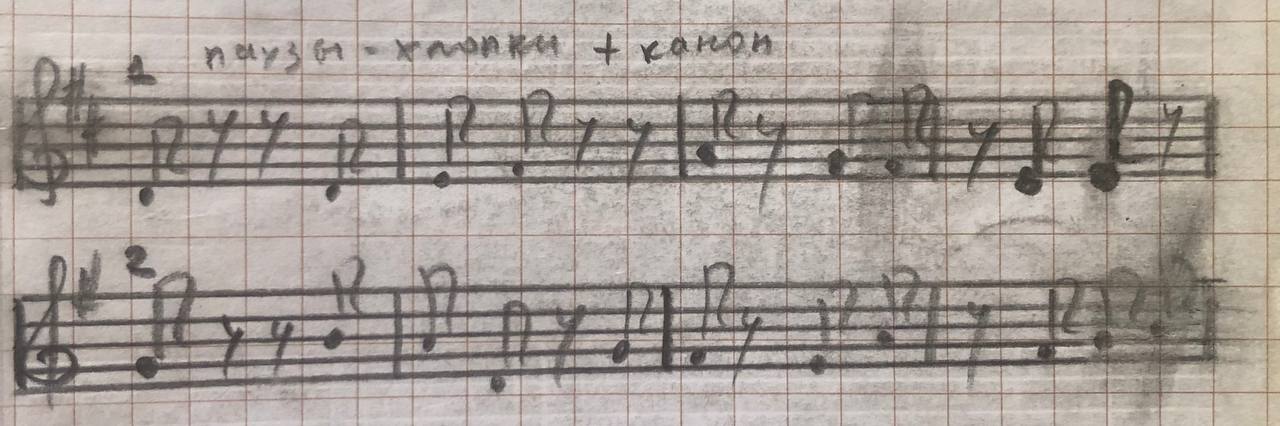 паузы - хлопки + канон
1
2